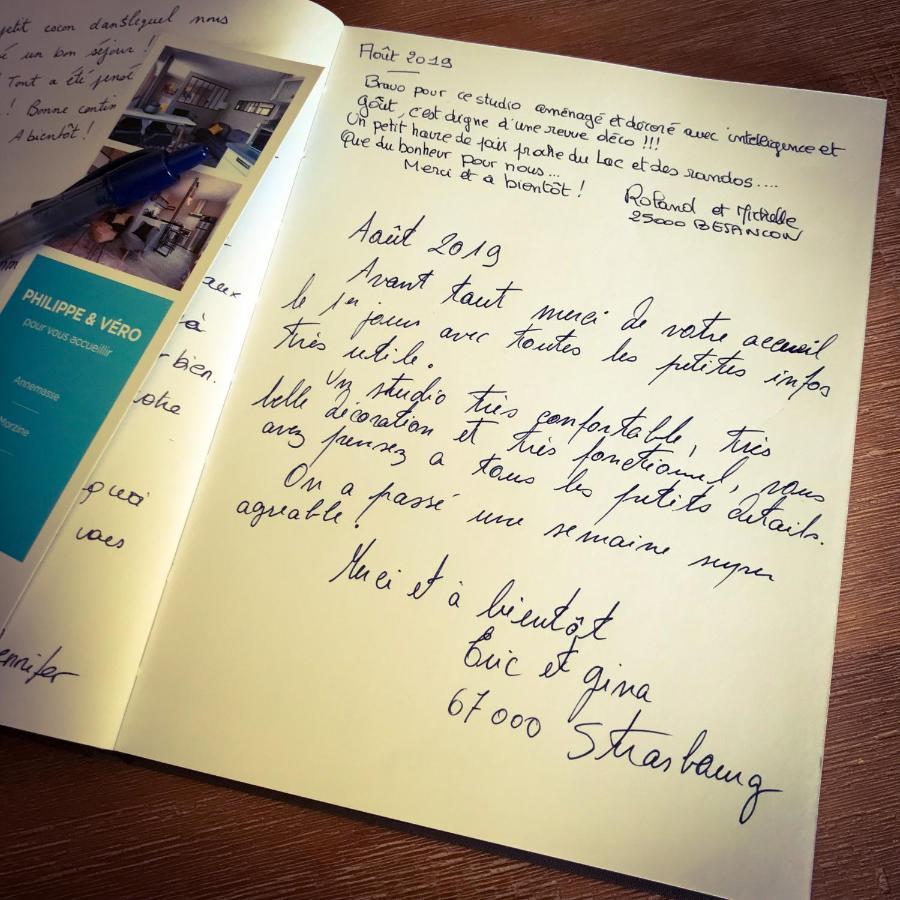 petit cocon dans lequel nous
un bon séjour !
Tout a été pensé
! Bonne contin
A bientôt !
PHILIPPE & VÉRO
pour vous accueillir
Annemasse
Morzine
aux
à
bien.
quoi
vous
ennifer
Août 2019
Bravo pour ce studio aménagé et décoré avec intelligence et
goût, c'est digne d'une revue déco !!!
Un petit havre de paix proche du Lac et des randos....
Que du bonheur pour nous...
Merci et à bientôt !
Roland et Michelle
25000 BESANCON
Août 2019
Avant tout merci de votre accueil
le 1er jour avec toutes les petites infos
très utile.
Un studio très confortable, très
belle décoration et très fonctionnel, vous
avez pensez a tous les petits détails.
On a passé une semaine super
agréable.
Merci et à bientôt
Eric et gina
67000 Strasbourg